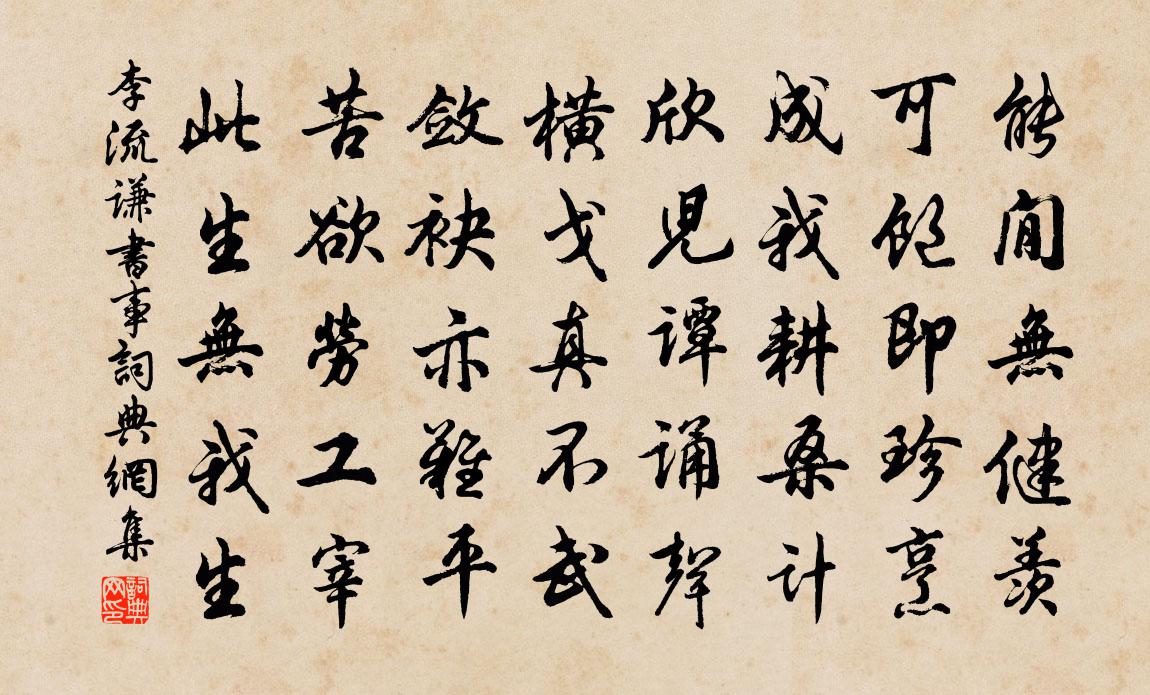 能閒無健羨
可飽即珍烹
成我耕桑計
欣兒譚誦聲
橫戈真不武
斂袂亦難平
苦欲勞工宰
此生無我生
李流謙書事詞典網集
詞典網印